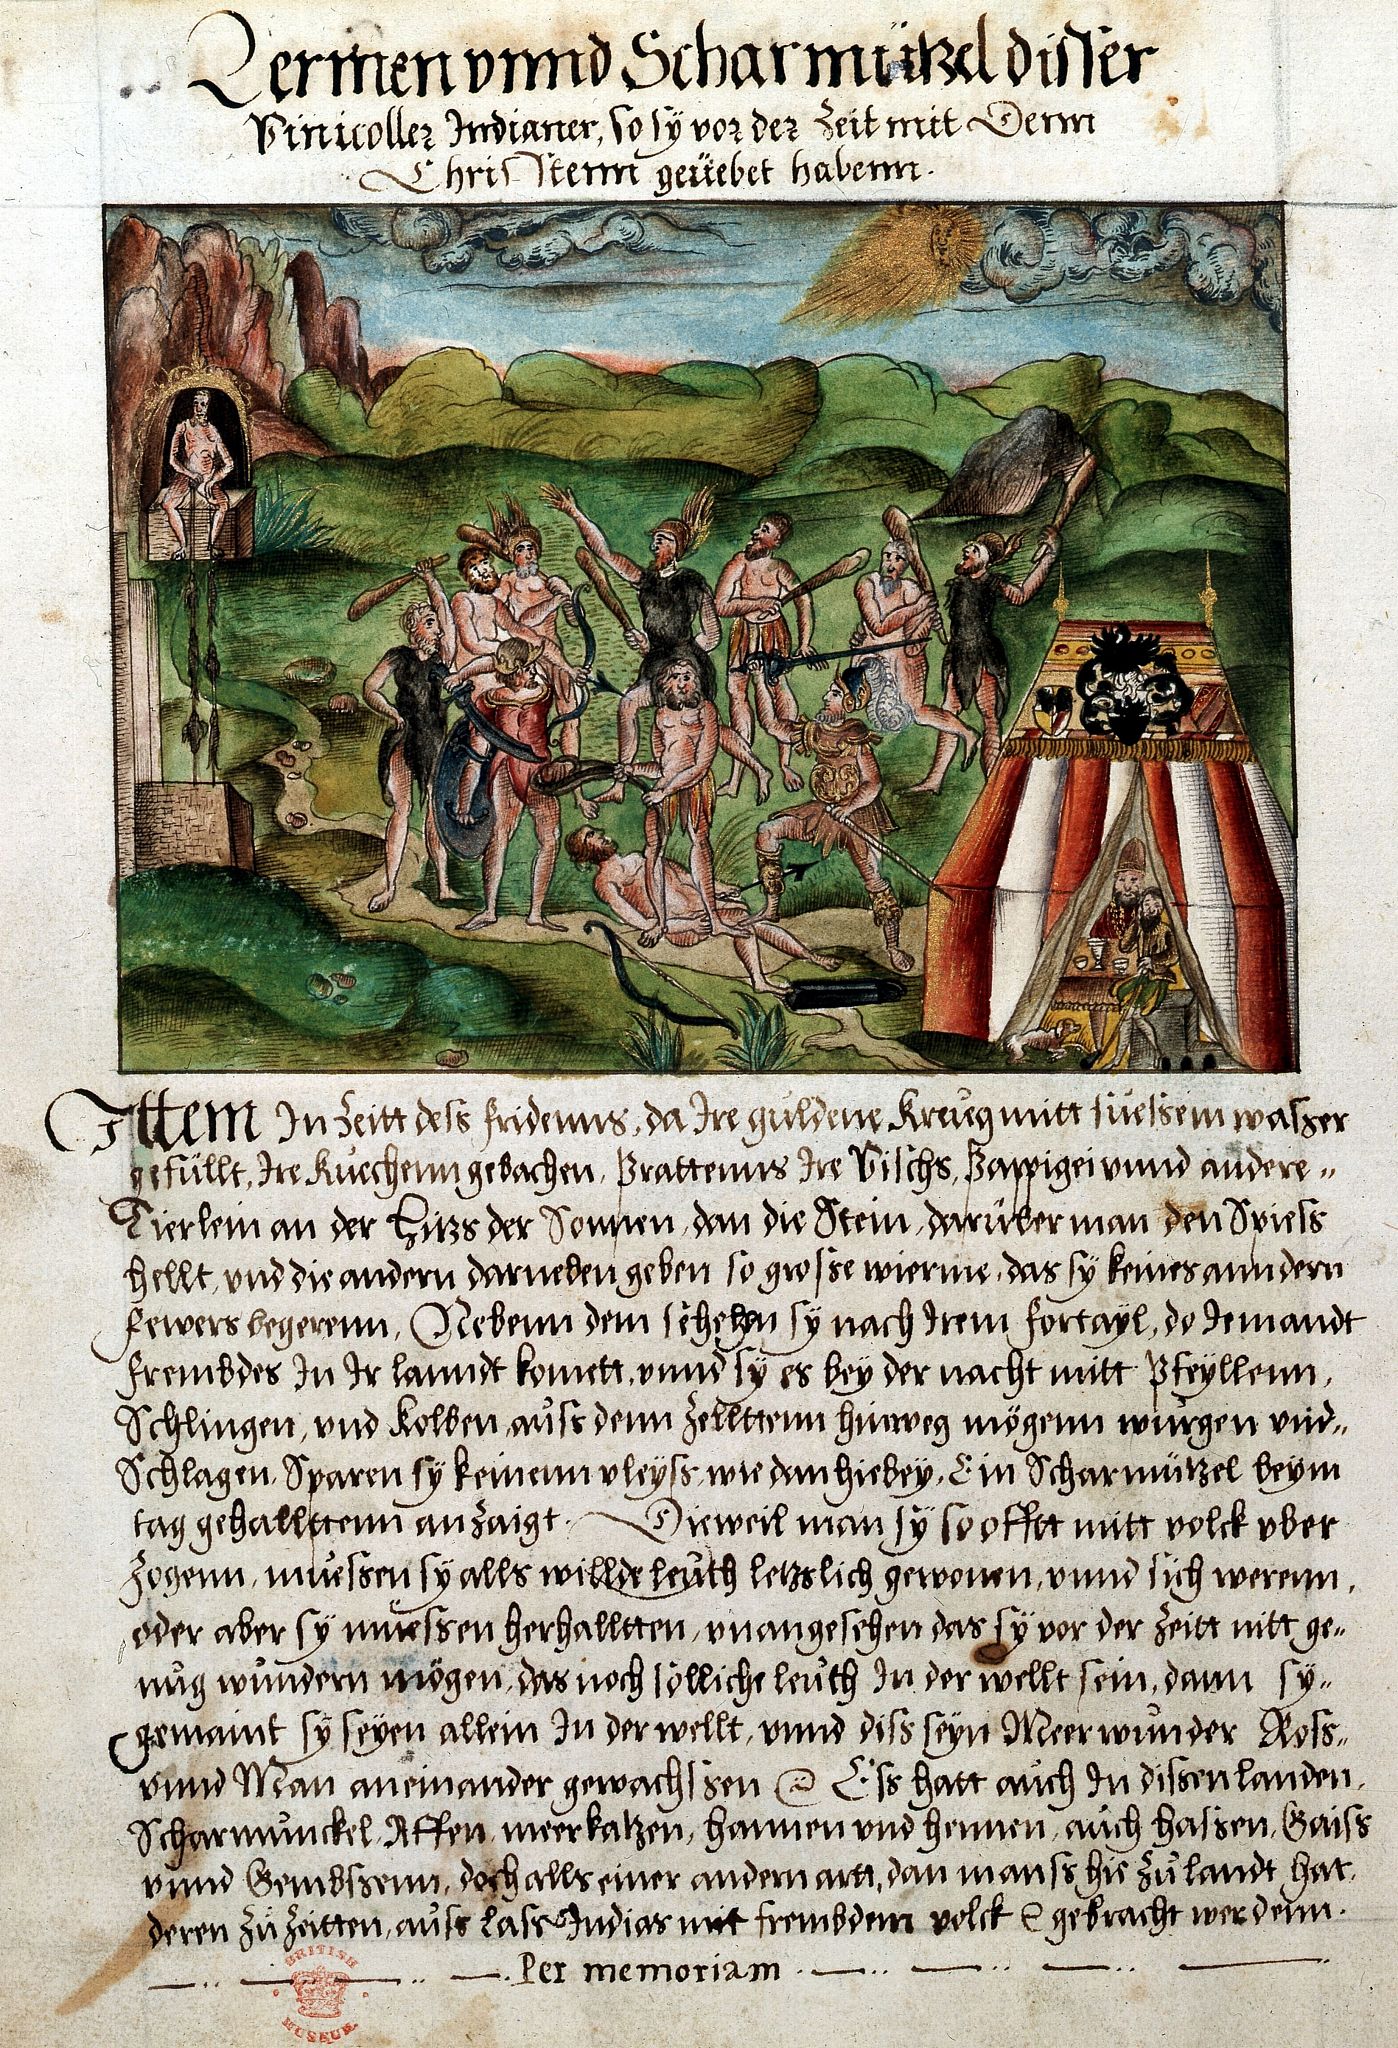 Lermen vnnd Scharmützel disser
Vinwoller Indianer, so sÿ vor der Zeit mit Denn
Christenn geüebet habenn.
Ittem In Zeitt dess fridenns, da Ire guldene Kreug mitt suessem wasser
gefüllt, Ire Kuechenn gebachen, Prattenns Ire Vischs, Pappigei vnnd andere=
Tierlein an der Hitzs der Sonnen, dan die Stein, darüber man den Spiess
hellt, vnd die andern darneben geben so grosse wierme, das sy keines anndern
fewers begerenn, Nebenn dem sehehen sy nach Irem fortayl, do Jemandt
frembdes In Ir lanndt komett, vnnd sy es bey der nacht mitt Pfeyllenn,
Schlingen, vnd Kolben, auss denn Zellttenn hinweg mögenn würgen vnd=
Schlagen, Sparen sy keinenn vleyss, wie dan hiebey, Ein Scharmützel beym
tag gehallttenn anzaigt. Dieweil man sÿ so offtt mitt volck vber
zogenn, muessen sÿ alls willde leuth letzslich gewonen, vnnd sich werenn,
oder aber sy muessen herhalltten, vnangesehen das sy vor der Zeitt nitt ge=
nug wundern mögen, das noch solliche leuth In der wellt sein, dann sy=
gemaint sy seyen allein In der wellt, vnnd diss seyn Meerwunder Ross=
vnnd Man aneinander gewachssen Ess hatt auch In dissen landen,
Scharmunckel, Affen, meerkatzen, hannen vnd hennen, auch hassen, Gaiss
vnnd Gembssenn, doch alls einer andern artt, dan manss hie zu landt hat,
deren zu Zeitten, auss lass Indias mit frembdem volck gebracht werdenn.
Per memoriam
BRITISH
MUSEUM